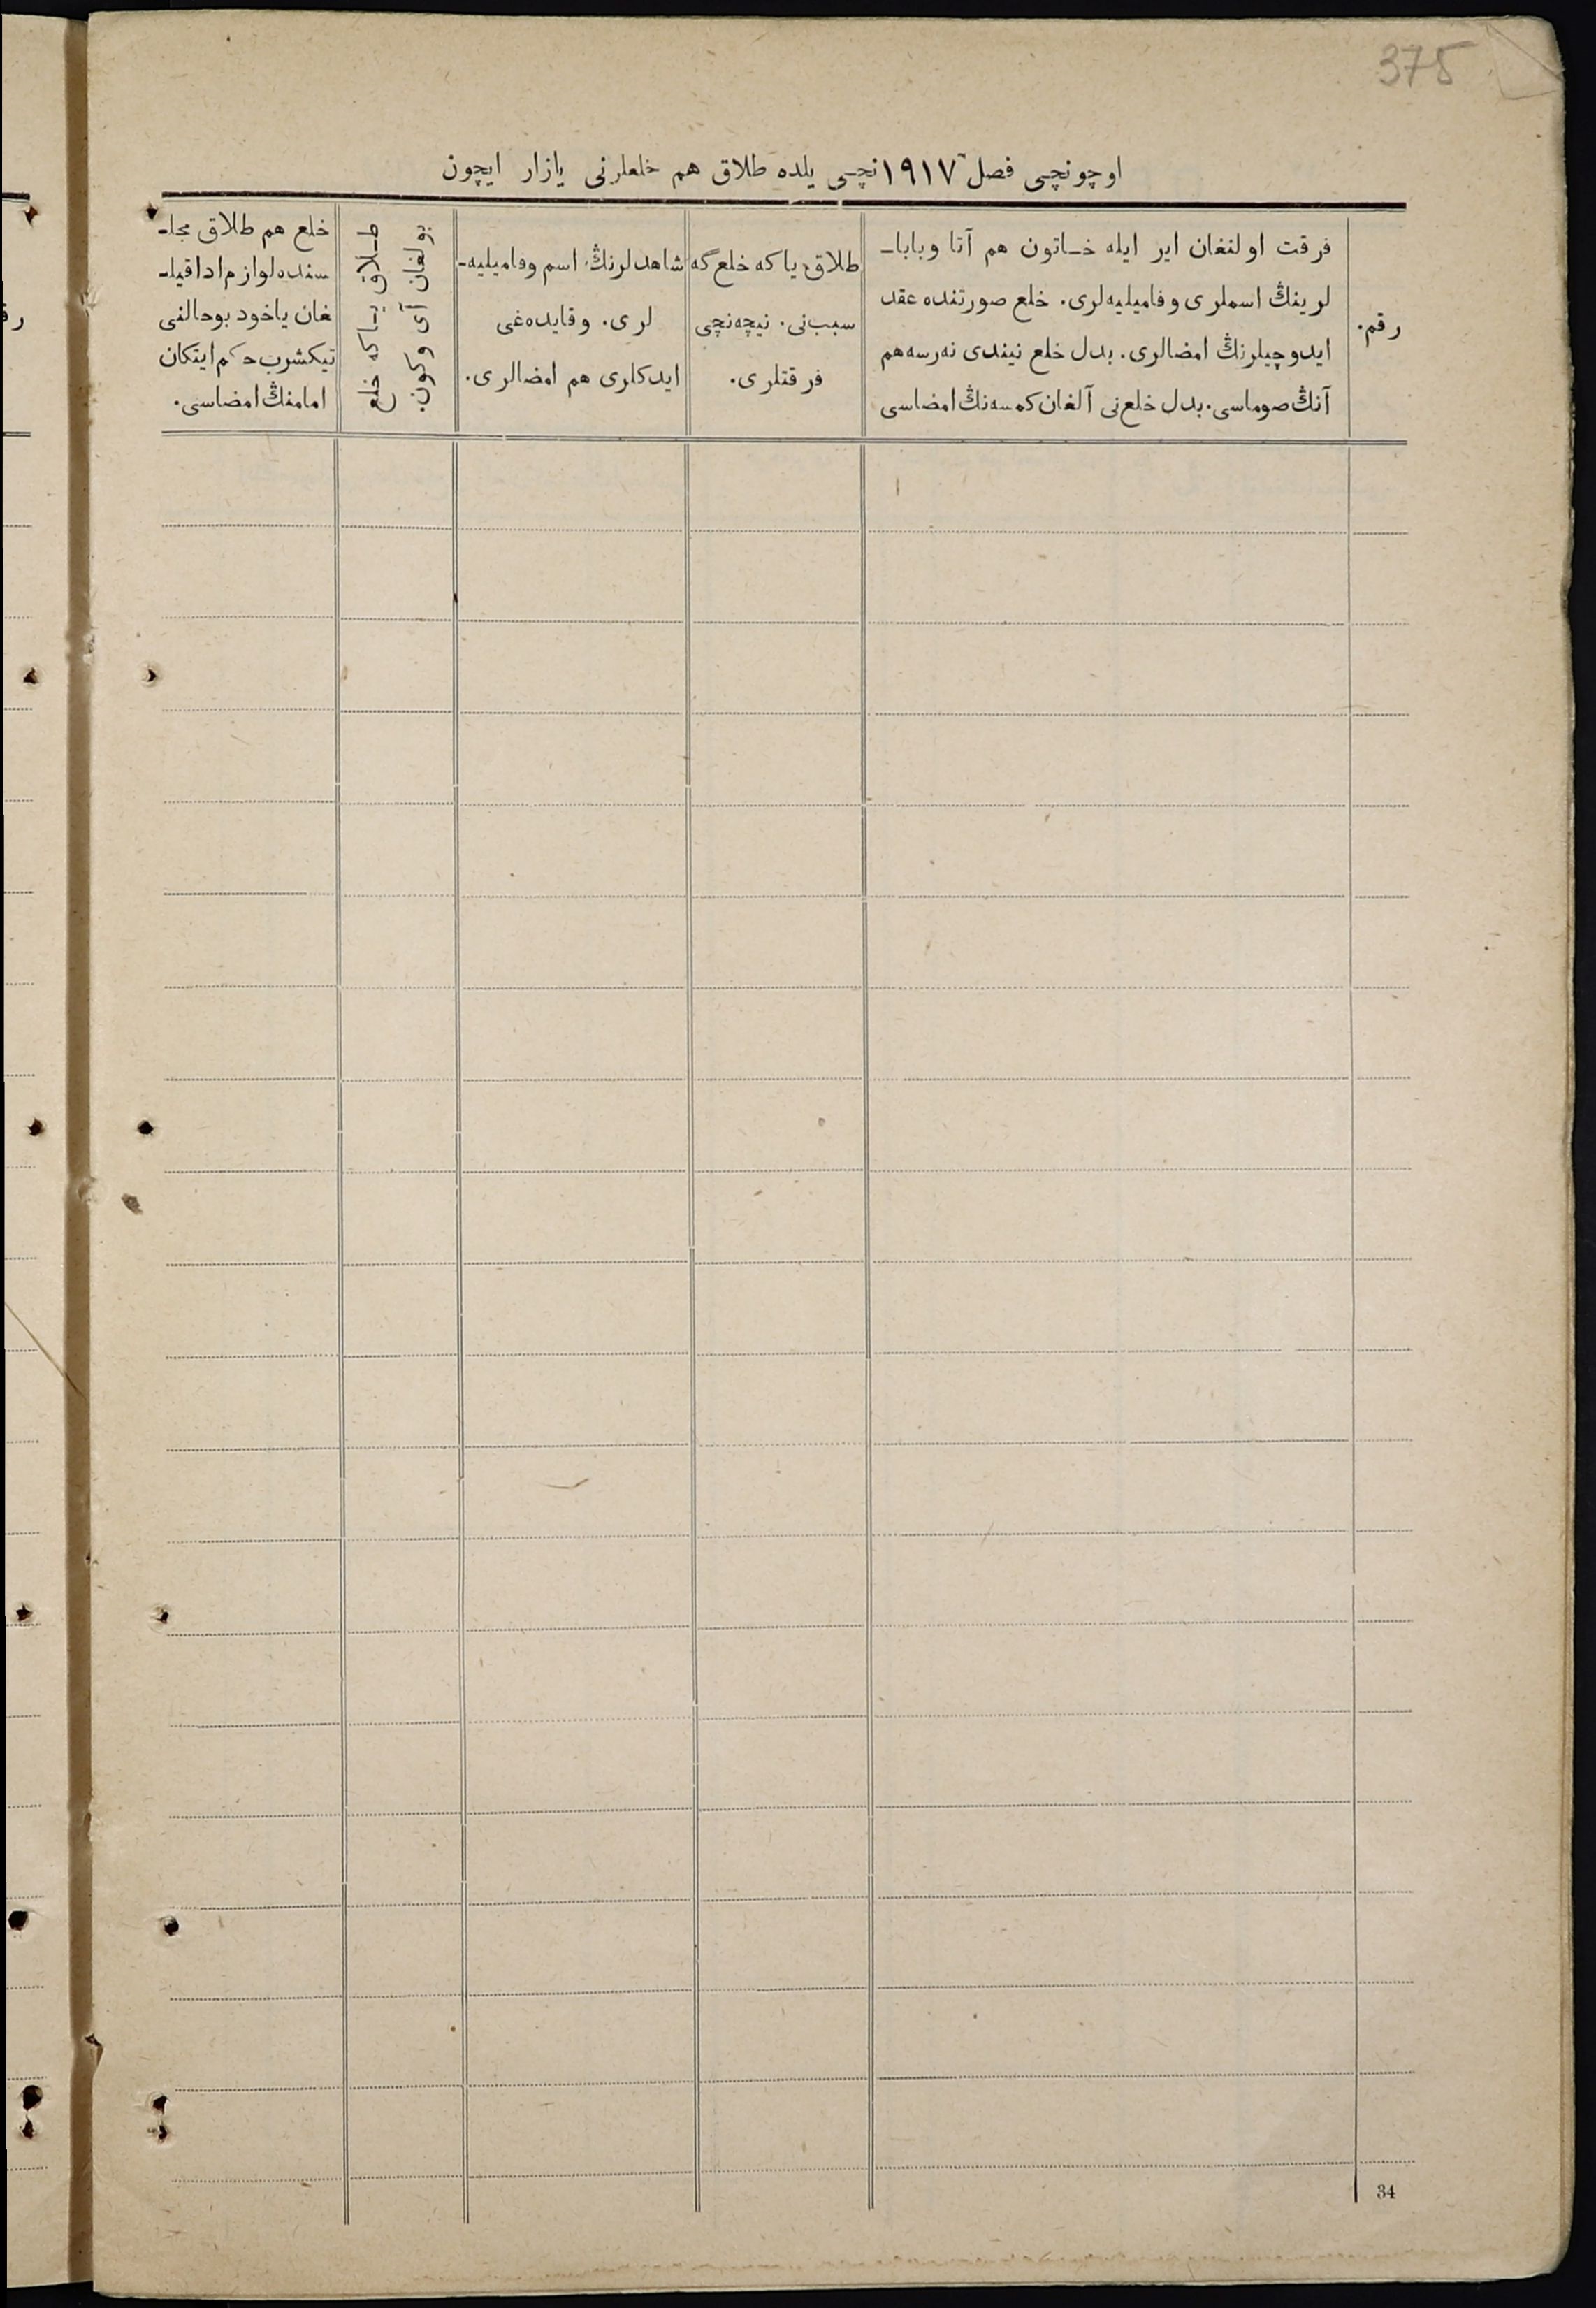 375
اوچونچی فصل ١٩١٧نچی یلده طلاق هم خلعلرنی یازار ایچون
رقم.
فرقت اولنغان ایر ایله خاتون هم آتا وبابا-
لرینڭ اسملری وفامیلیه‌لری. خلع صورتنده عقد
ایدوچیلرنڭ امضالری. بدل خلع نیندی نه‌رسه هم
آنڭ صوماسی. بدل خلع‌نی آلغان کمسه‌نڭ امضاسی
طلاق یا که خلع گه
سبب‌نی. نیچه‌نچی
فرقتلری.
شاهدلرنڭ اسم وفامیلیه-
لری. وقایده‌غی
ایدکلری هم امضالری.
طلاق یاکه خلع
بولغان آی وکون.
خلع هم طلاق مجا-
سنده لوازم ادا قیل-
غان یاخود بوحالنی
تیکشرب حکم ایتکان
امامنڭ امضاسی.
34